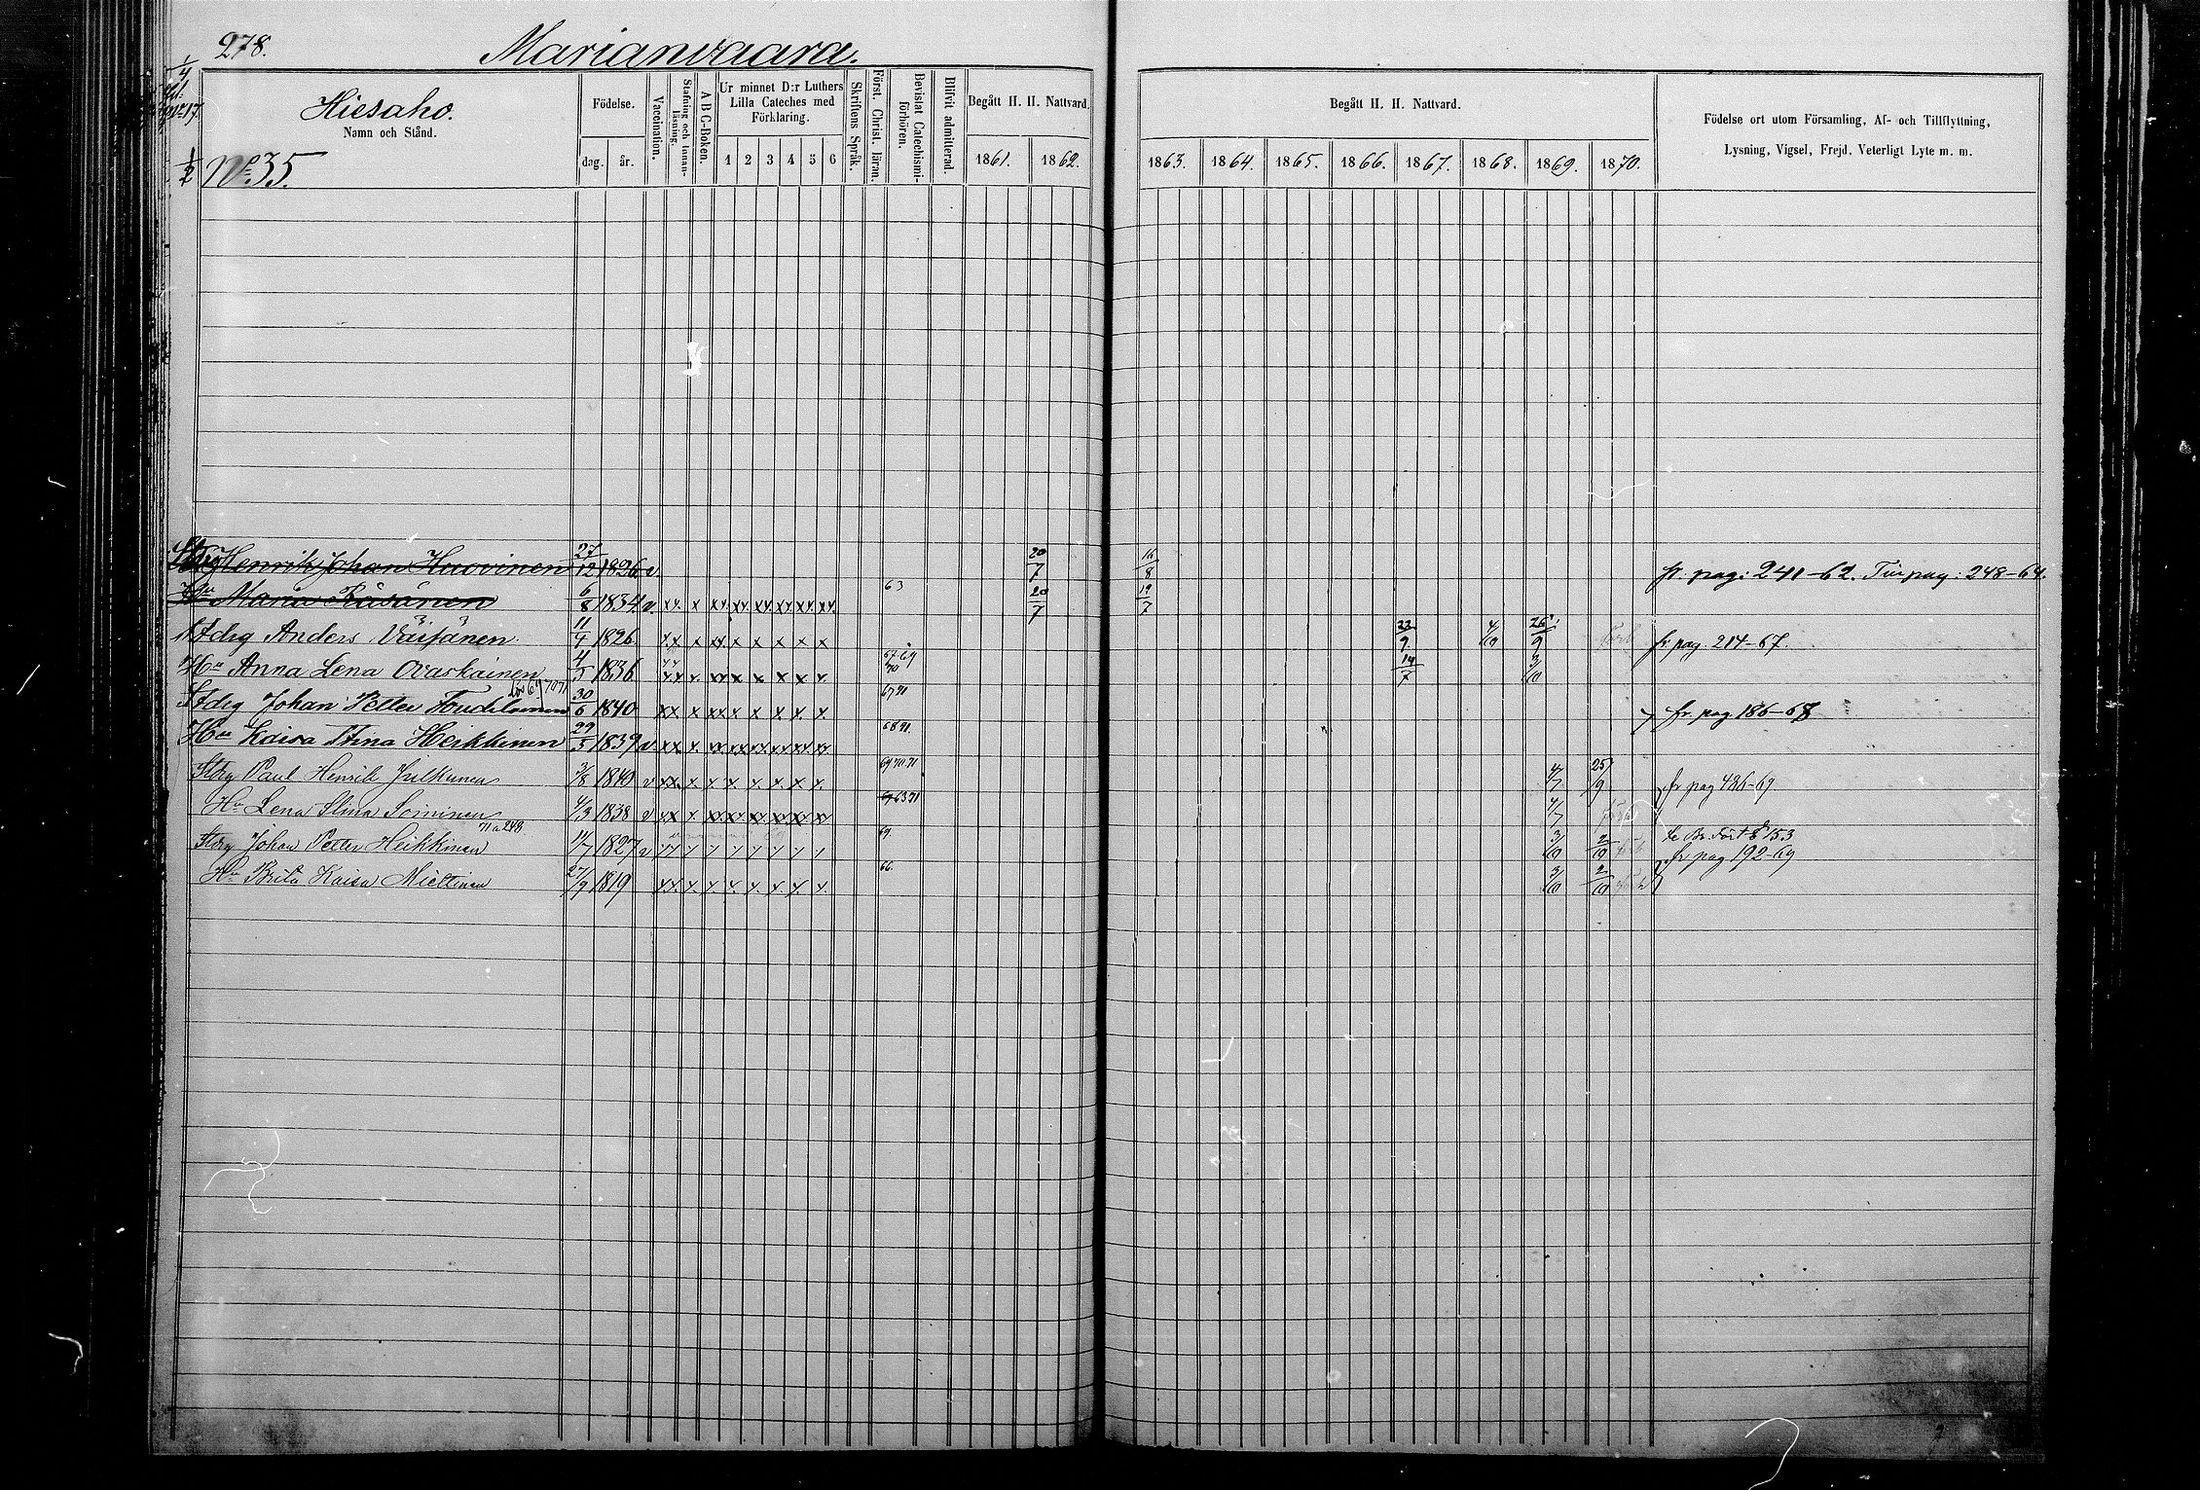 278.
Marianvaara.
Hiesaho.
Namn och Stånd.
No 35.
Födelse.
dag. år.
Vaccination.
Stafning och innan-läsning.
A B C-Boken.
Ur minnet D:r Luthers Lilla Cateches med Förklaring.
1 2 3 4 5 6
Skriftens Språk.
Först. Christ. läran.
Bevistat Catechismi-förhören.
Blifvit admitterad.
Begått H. H. Nattvard.
1861. 1862.
Begått H. H. Nattvard.
1863. 1864. 1865. 1866. 1867. 1868. 1869. 1870.
Födelse ort utom Församling, Af- och Tillflyttning,
Lysning, Vigsel, Frejd, Veterligt Lyte m. m.
Henrik Johan Huovinen 27/12 1826 v. 20/7 16/8 fr. pag: 241-62. Tin pag: 248-64.
Hu Maria Räsänen 6/8 1834 v. xx. x xx xx xx xx xx xx 63 20/7 19/7
Stdrg Anders Väisänen 11/4 1826 x x x xx x x x x x 22/9 4/10 26/9 fr. pag. 214-67.
Hu Anna Lena Ovaskainen 4/5 1836 67 69 70 14/7 3/10
Stdrg Johan Petter 30/6 1840 xx x xx x x x x x 67 71 fr. pag 186-68
Hu Kaisa Stina Heikkinen 29/5 1839 v xx x. xx xx xx xx xx xx 68 71
Stdrg Paul Henrik 3/8 1840 v xx x. x. x. x. x x. 69 70 71 4/7 25/9 fr pag 486-69
Hu Lena Stina Soininen 4/3 1838 v xx x xx xx xx xx xx 63 71 4/7
71 a 248
Stdrg Johan Petter Heikkinen 14/7 1827 v 69. 3/10 2/10 fr pag 192-69
Hu Brita Kaisa Miettinen 27/9 1819 xx. x. x x. x. x. x. x. 66. 3/10 2/10